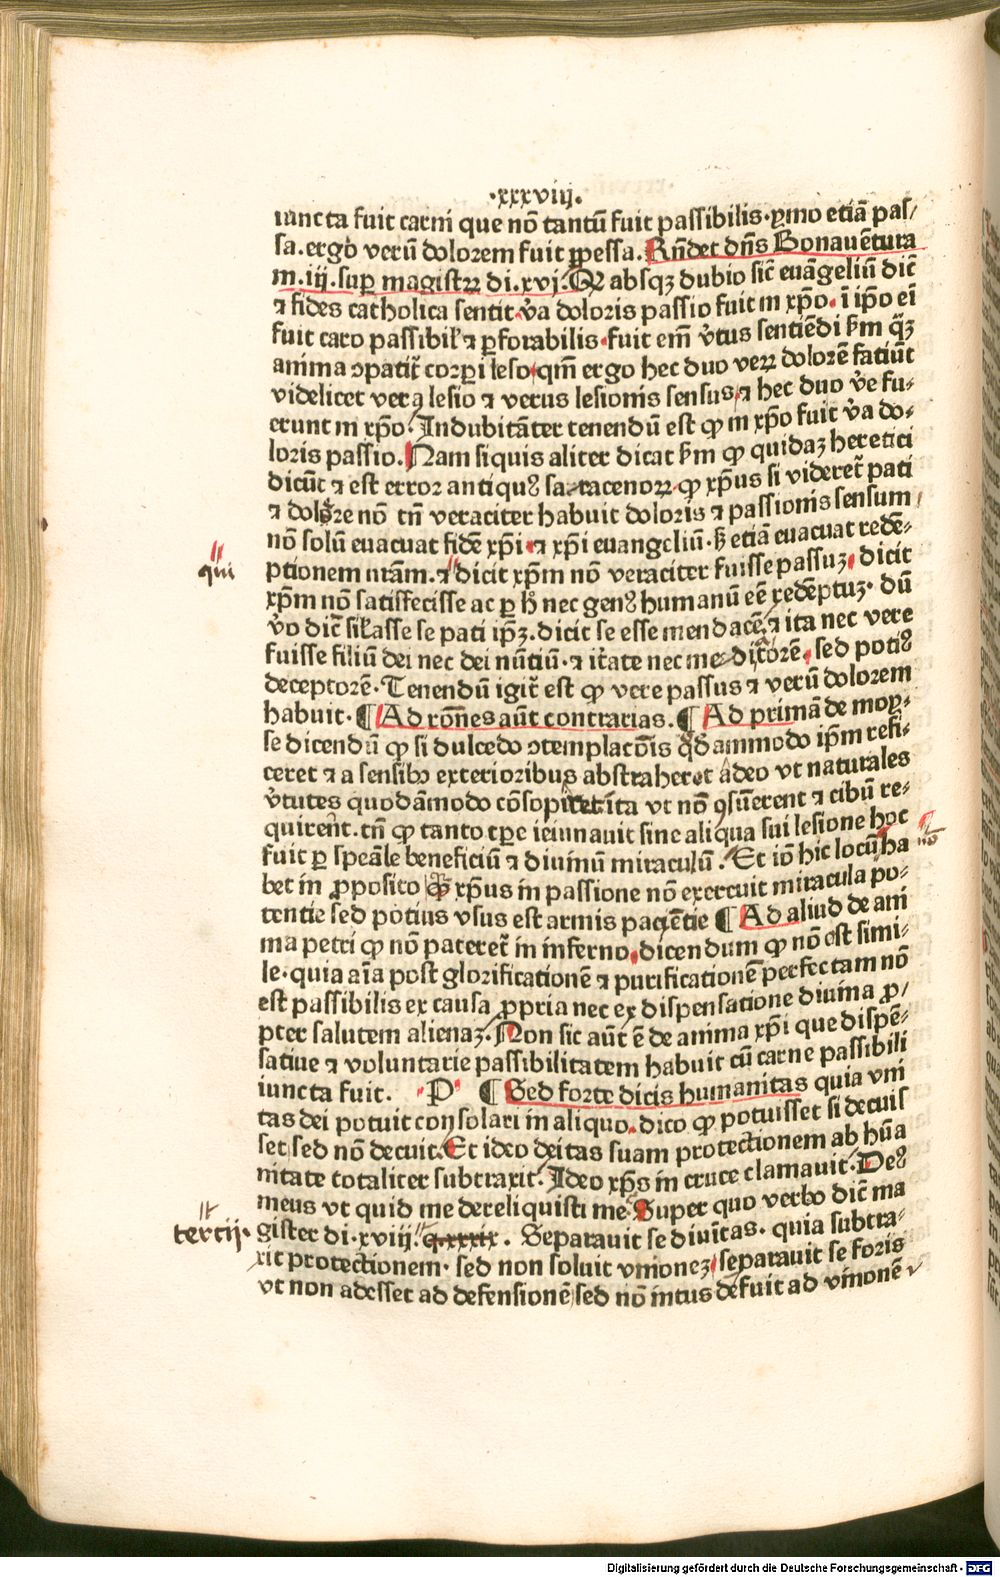 ·xxxviij.
iuncta fuit carni que nō tantū fuit passibilis·ymo etiā pas/
sa.ergo verū dolorem fuit ꝑpessa. Rn̄det dn̄s Bonauētura
in.iij.suꝑ magistrꝝ di.xvj.Q absqꝫ dubio sic̄ euāgeliū dic̄
⁊ fides catholica sentit.v̄a doloris passio fuit in xp̄o.ī ip̄o ei
fuit caro passibil̄ ⁊ ꝑforabilis.fuit em̄ v̄tus sentiēdi ẜm q̄ꝫ
anima ꝯpatit̄ corꝑi leso.qm̄ ergo hec duo veꝝ dolorē faciūt
videlicet verꝰ lesio ⁊ verus lesionis sensus.⁊ hec duo v̄e fu-
erunt in xp̄o. Indubitāter tenendū est ꝙ in xp̄o fuit v̄a do-
loris passio. Nam siquis aliter dicat ẜm ꝙ quidaꝫ heretici
dicūt ⁊ est error antiquꝰ sa-racenoꝝ ꝙ xp̄us si videret̄ pati
⁊ dolore nō tn̄ veraciter habuit doloris ⁊ passionis sensum
nō solū euacuat fidē xp̄i.⁊ xp̄i euangeliū.ꝫ etiā euacuat redē-
qui ptionem nr̄am.⁊ dicit xp̄m nō veraciter fuisse passuꝫ.dicit
xp̄m nō satisfecisse ac ꝑ h̄ nec genꝰ humanū eē redēptuꝫ. dū
v̄o dic̄ sil̄asse se pati ip̄ꝫ.dicit se esse mendacē.⁊ ita nec vere
fuisse filiū dei nec dei nūtiū.⁊ it̄ate nec me-diatorē.sed potiꝰ
deceptorē. Tenendū igit̄ est ꝙ vere passus ⁊ verū dolorem
habuit. ¶ Ad rōnes aūt contrarias. ¶ Ad primā de moy-
se dicendū ꝙ si dulcedo ꝯtemplacōis q̄dammodo ip̄m refi-
ceret ⁊ a sensibꝫ exterioribus abstraheret adeo vt naturales
v̄tutes quodāmodo cōsopiret ita vt nō ꝯsūerent ⁊ cibū re-
quirent.tn̄ ꝙ tanto tꝑe ieiunauit sine aliqua sui lesione hoc
fuit ꝑ speāle beneficiū ⁊ diuinū miraculū. Et iō hic locū ha nō
bet in ꝓposito xp̄us in passione nō exercuit miracula po-
tentie sed potius vsus est armis paciētie ¶ Ad aliud de ani
ma petri ꝙ nō pateret̄ in inferno.dicendum ꝙ nō est simi-
le.quia aīa post glorificationē ⁊ purificationē perfectam nō
est passibilis ex causa ꝓpria nec ex dispensatione diuina ꝓ/
pter salutem alienaꝫ. Non sic aūt ē de anima xp̄i que dispē-
satiue ⁊ voluntarie passibilitatem habuit cū carne passibili
iuncta fuit. P ¶ Sed forte dicis humanitas quia vni
tas dei potuit consolari in aliquo.dico ꝙ potuisset si decuis
set sed nō decuit. Et ideo deitas suam protectionem ab hūa
nitate totaliter subtraxit. Ideo xp̄s in cruce clamauit. Deꝰ
meus vt quid me dereliquisti me. Super quo verbo dic̄ ma
tercij. gister di.xviij. q.xxxix. Separauit se diuītas. quia subtra-
xit protectionem. sed non soluit vnioneꝫ separauit se foris
vt non adesset ad defensionē sed nō intus defuit ad vnionē
Digitalisierung gefördert durch die Deutsche Forschungsgemeinschaft - DFG